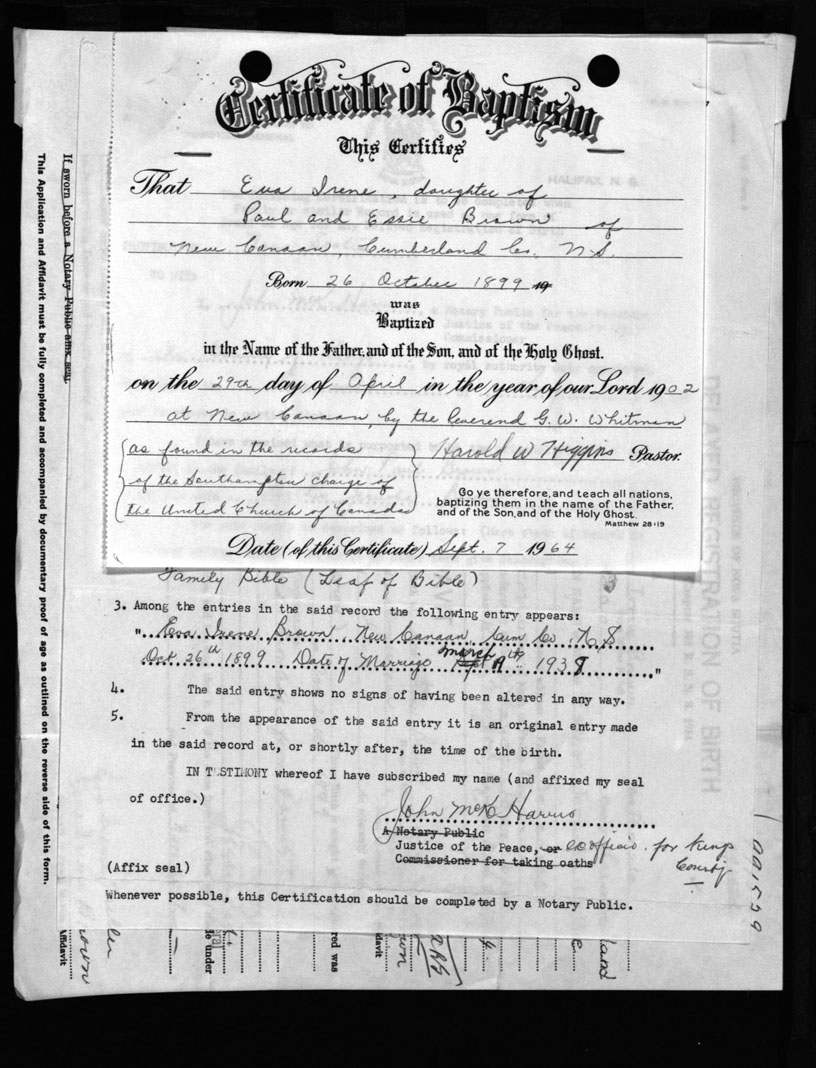 Certificate of Baptism
This Certifies
That Eva Irene, daughter of
Paul and Essie Brown of
New Canaan, Cumberland Co. N.S.
Born 26 October 1899 19
was
Baptized
in the Name of the Father, and of the Son, and of the Holy Ghost.
on the 29th day of April in the year of our Lord 1902
at New Canaan, by the Reverend G. W. Whitman
as found in the records
of the Southampton charge of
the United Church of Canada
Harold W Higgins Pastor.
Go ye therefore, and teach all nations,
baptizing them in the name of the Father,
and of the Son, and of the Holy Ghost.
Matthew 28:19
Date (of this Certificate) Sept. 7 1964
Family Bible (Leaf of Bible)
3. Among the entries in the said record the following entry appears:
"Eva Irene Brown, New Canaan, Cum Co, N.S
Oct. 26th 1899 Date of Marriage March Sept 19th 1938"
4. The said entry shows no signs of having been altered in any way.
5. From the appearance of the said entry it is an original entry made
in the said record at, or shortly after, the time of the birth.
IN TESTIMONY whereof I have subscribed my name (and affixed my seal
of office.)
John McK Harris
A Notary Public
Justice of the Peace, or for Kings
County
Commissioner for taking oaths
(Affix seal)
Whenever possible, this Certification should be completed by a Notary Public.
If sworn before a Notary Public affix seal.
This Application and Affidavit must be fully completed and accompanied by documentary proof of age as outlined on the reverse side of this form.
HALIFAX, N. S.
DELAYED REGISTRATION OF BIRTH
001529
Affidavit
Brown
le under
red was
davit